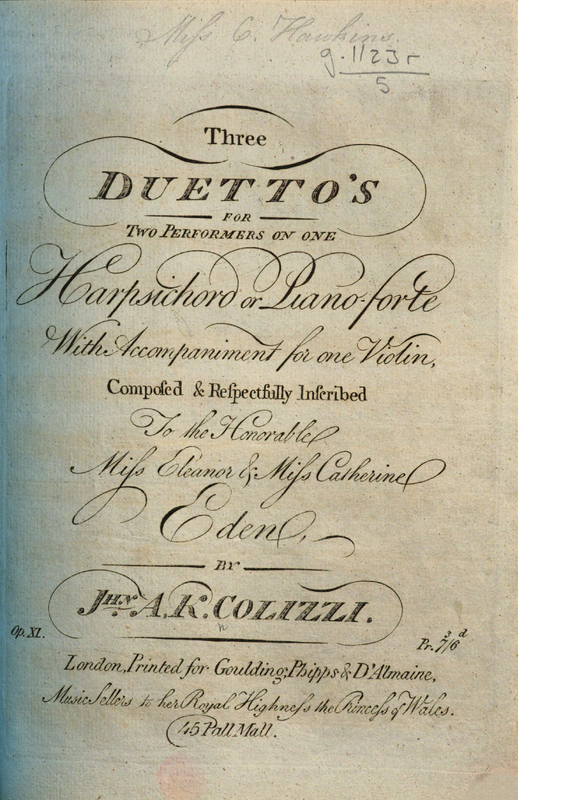 Miſs C. Hawkins.
g.1123r
5
Three
DUETTO'S
FOR
TWO PERFORMERS ON ONE
Harpsichord or Piano-forte
With Accompaniment for one Violin,
Compoſed & Reſpectfully Inſcribed
To the Honorable
Miſs Eleanor & Miſs Catherine
Eden,
BY
JHN. A. K. COLIZZI.
h
Op. XI.
Pr. 7s/6d
London, Printed for Goulding, Phipps & D'Almaine,
Music Sellers to her Royal Highneſs the Princeſs of Wales.
45 Pall Mall.